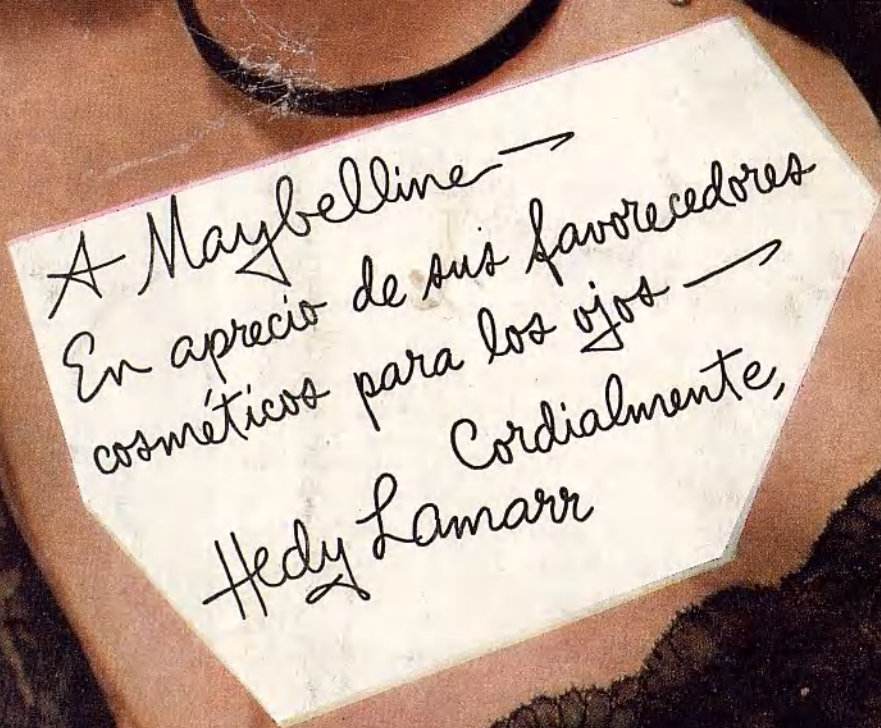 A Maybelline →
En aprecio de sus favorecedores
cosméticos para los ojos →
Cordialmente,
Hedy Lamarr